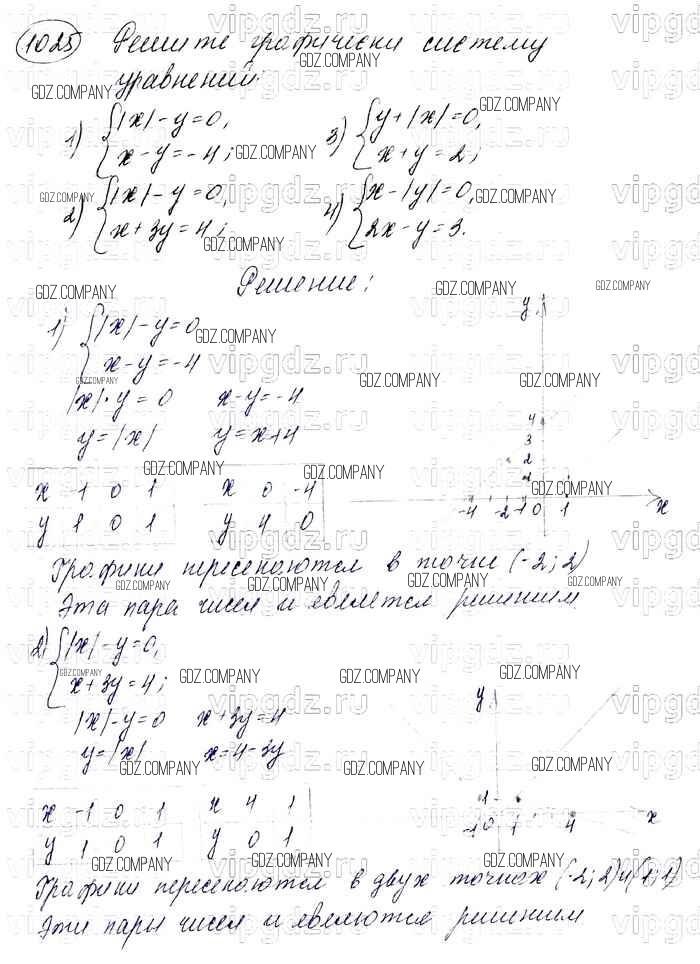 1025 Решите графически систему
уравнений:
1) {|x| - y = 0, 3) {y + |x| = 0,
x - y = -4; x + y = 2;
2) {|x| - y = 0, 4) {x - |y| = 0,
x + 3y = 4; 2x - y = 3.
Решение:
1) {|x| - y = 0
x - y = -4
|x| - y = 0 x - y = -4
y = |x| y = x + 4
x 1 0 1 x 0 -4
y 1 0 1 y 4 0
y
4
3
2
1
-4 -2 -1 0 1 x
Графики пересекаются в точке (-2; 2)
Эта пара чисел и является решением
2) {|x| - y = 0,
x + 3y = 4;
|x| - y = 0 x + 3y = 4
y = |x| x = 4 - 3y
x -1 0 1 x 4 1
y 1 0 1 y 0 1
y
1
-1 0 1 4 x
Графики пересекаются в двух точках (-2; 2) и (1; 1)
Эти пары чисел и являются решением
GDZ.COMPANY
vipgdz.ru